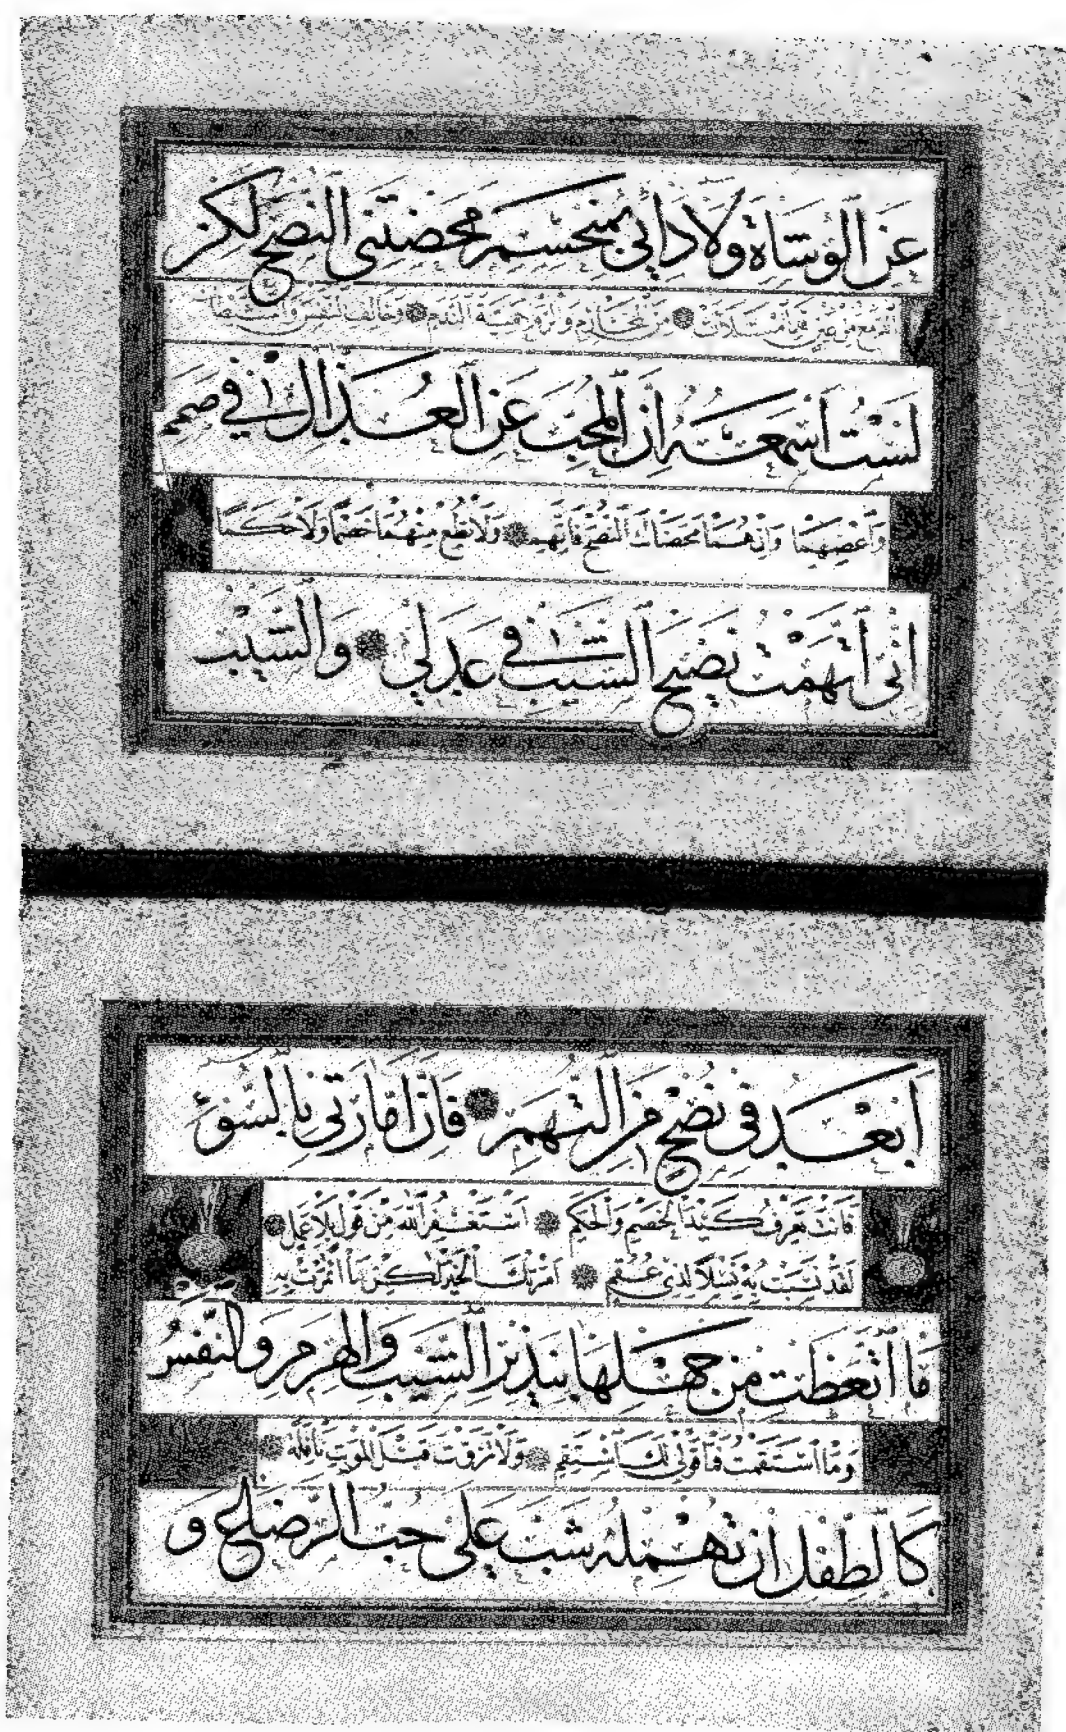 عَنِ الْوُشَاةِ وَلَا دَائِي بِمُنْحَسِمِ مَحَضْتَنِي النُّصْحَ لٰكِنْ
الدَّمْعَ مِنْ عَيْنٍ قَدِ امْتَلَأَتْ مِنَ الْمَحَارِمِ وَالْزَمْ حِمْيَةَ النَّدَمِ وَخَالِفِ النَّفْسَ وَالشَّيْطَانَ
لَسْتُ أَسْمَعُهُ إِنَّ الْمُحِبَّ عَنِ الْعُذَّالِ فِي صَمَمِ
وَاعْصِهِمَا وَإِنْ هُمَا مَحَضَاكَ النُّصْحَ فَاتَّهِمِ وَلَا تُطِعْ مِنْهُمَا خَصْمًا وَلَا حَكَمًا
إِنِّي اتَّهَمْتُ نَصِيحَ الشَّيْبِ فِي عَذَلِي وَالشَّيْبُ
أَبْعَدُ فِي نُصْحٍ مِنَ التُّهَمِ فَإِنَّ أَمَّارَتِي بِالسُّوءِ
فَأَنْتَ تَعْرِفُ كَيْدَ الْخَصْمِ وَالْحَكَمِ أَسْتَغْفِرُ اللهَ مِنْ قَوْلٍ بِلَا عَمَلٍ
لَقَدْ نَسَبْتُ بِهِ نَسْلًا لِذِي عُقُمِ أَمَرْتُكَ الْخَيْرَ لٰكِنْ مَا ائْتَمَرْتُ بِهِ
مَا اتَّعَظَتْ مِنْ جَهْلِهَا بِنَذِيرِ الشَّيْبِ وَالْهَرَمِ وَالنَّفْسُ
وَمَا اسْتَقَمْتُ فَمَا قَوْلِي لَكَ اسْتَقِمِ وَلَا تَزَوَّدْتُ قَبْلَ الْمَوْتِ نَافِلَةً
كَالطِّفْلِ إِنْ تُهْمِلْهُ شَبَّ عَلَى حُبِّ الرَّضَاعِ وَ